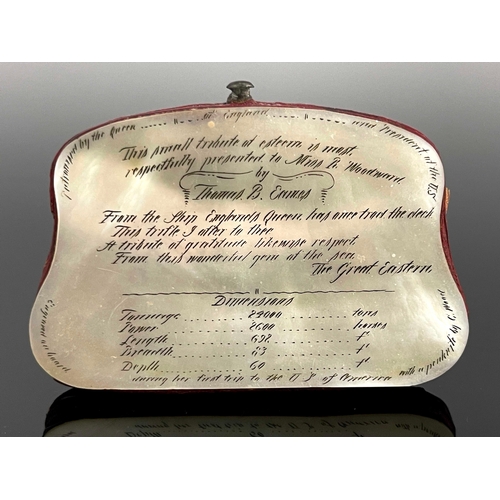 Patronized by the Queen of England and President of the US
This small tribute of esteem is most
respectfully presented to Miss R. Woodward
by
Thomas B. Eames
From the Ship Englands Queen, has once trod the deck
This trifle I offer to thee
A tribute of gratitude likewise respect
From this wonderful gem of the sea.
The Great Eastern
Dimensions
Tonnage 22000 tons
Power 2600 horses
Length 692 f'
Breadth 83 f'
Depth 60 f'
Engraved on board during her first trip to the U S of America with a penknife by C. Wood